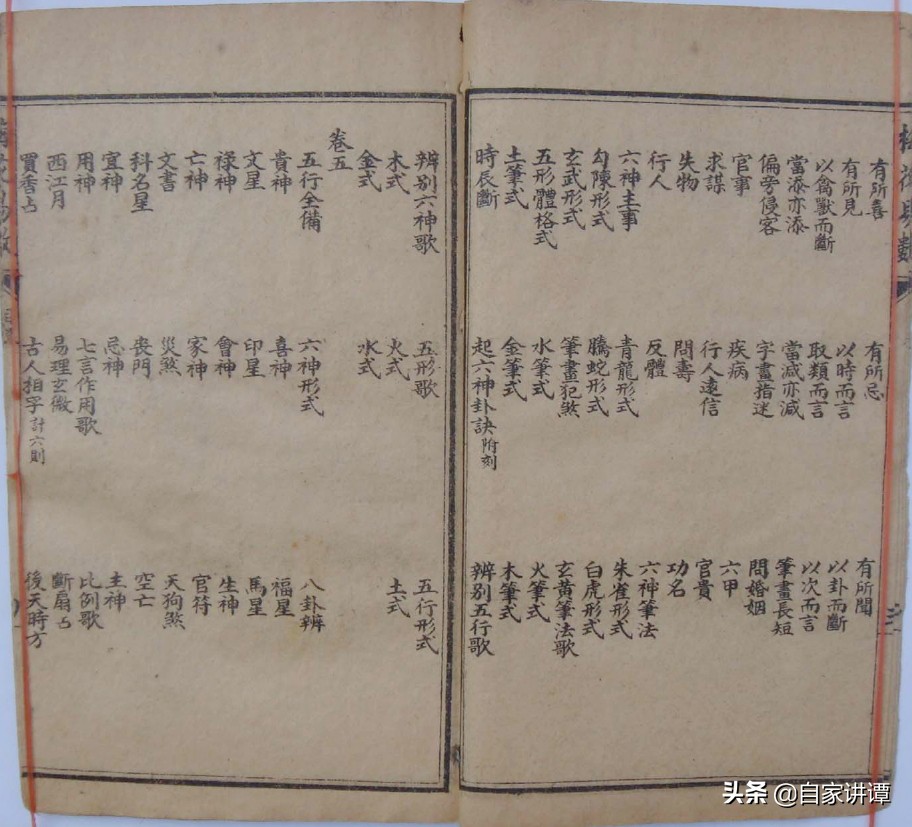 有所喜 有所忌 有所聞
有所見 以時而言 以卦而斷
以禽獸而斷 取類而言 以次而言
當添亦添 當減亦減 筆畫長短
偏旁侵客 字畫指迷 問婚姻
官事 疾病 六甲
求謀 行人遠信 官貴
失物 問壽 功名
行人 反體 六神筆法
六神主事 青龍形式 朱雀形式
勾陳形式 騰蛇形式 白虎形式
玄武形式 筆畫犯煞 玄黃筆法歌
五形體格式 水筆式 火筆式
土筆式 金筆式 木筆式
時辰斷 起六神卦訣附刻 辨別五行歌
辨別六神歌 五形歌 五行形式
木式 火式 土式
金式 水式
卷五
五行全備 六神形式 八卦辨
貴神 喜神 福星
文星 印星 馬星
祿神 會神 生神
亡神 家神 官符
文書 災煞 天狗煞
科名星 喪門 空亡
宜神 忌神 主神
用神 七言作用歌 比例歌
西江月 易理玄微 斷扇占
買香占 古人相字計六則 後天時方
头条 @自家讲谭